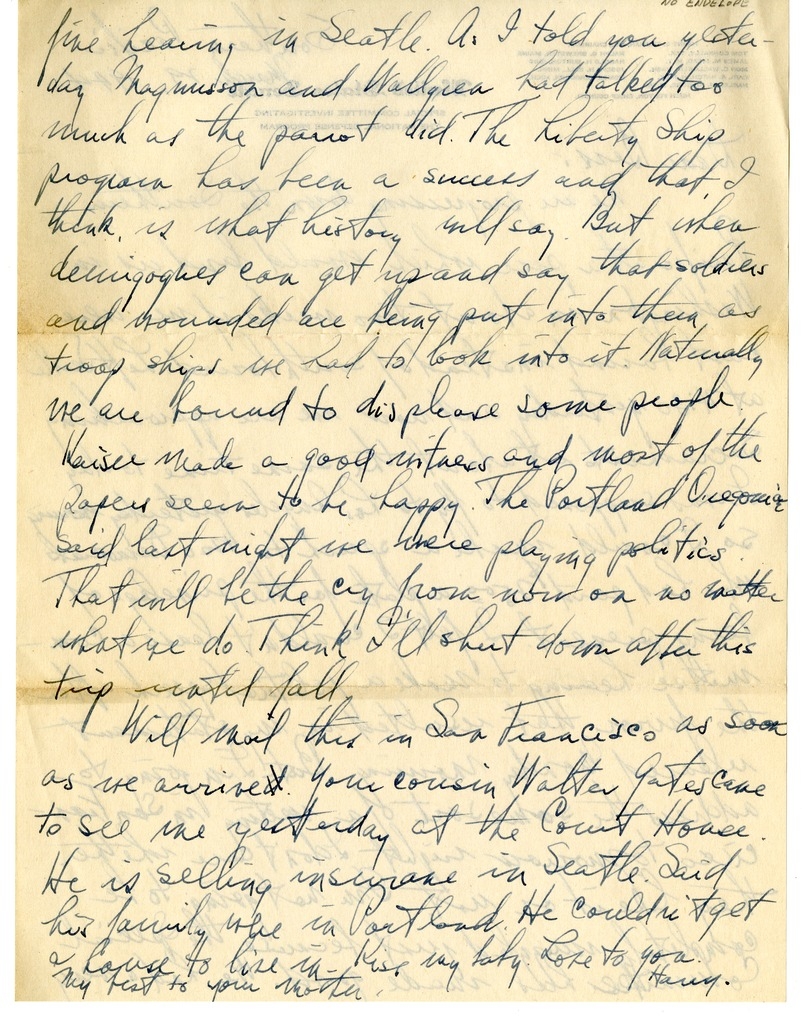 NO ENVELOPE
fine hearing in Seatle. As I told you yester-
day Magnusson and Wallgren had talked too
much as the parrot did. The Liberty Ship
program has been a success and that, I
think, is what history will say. But when
demigogues can get up and say that soldiers
and wounded are being put into them as
troop ships we had to look into it. Naturally
we are bound to displease some people.
Kaiser made a good witness and most of the
papers seem to be happy. The Portland Oregonian
said last night we were playing politics.
That will be the cry from now on no matter
what we do. Think I'll shut down after this
trip until fall.
Will mail this in San Francisco as soon
as we arrive. Your cousin Walter Gates came
to see me yesterday at the Court House.
He is selling insurane in Seatle. Said
his family were in Portland. He couldn't get
a house to live in - Kiss my baby. Love to you.
Harry.
My best to your mother.